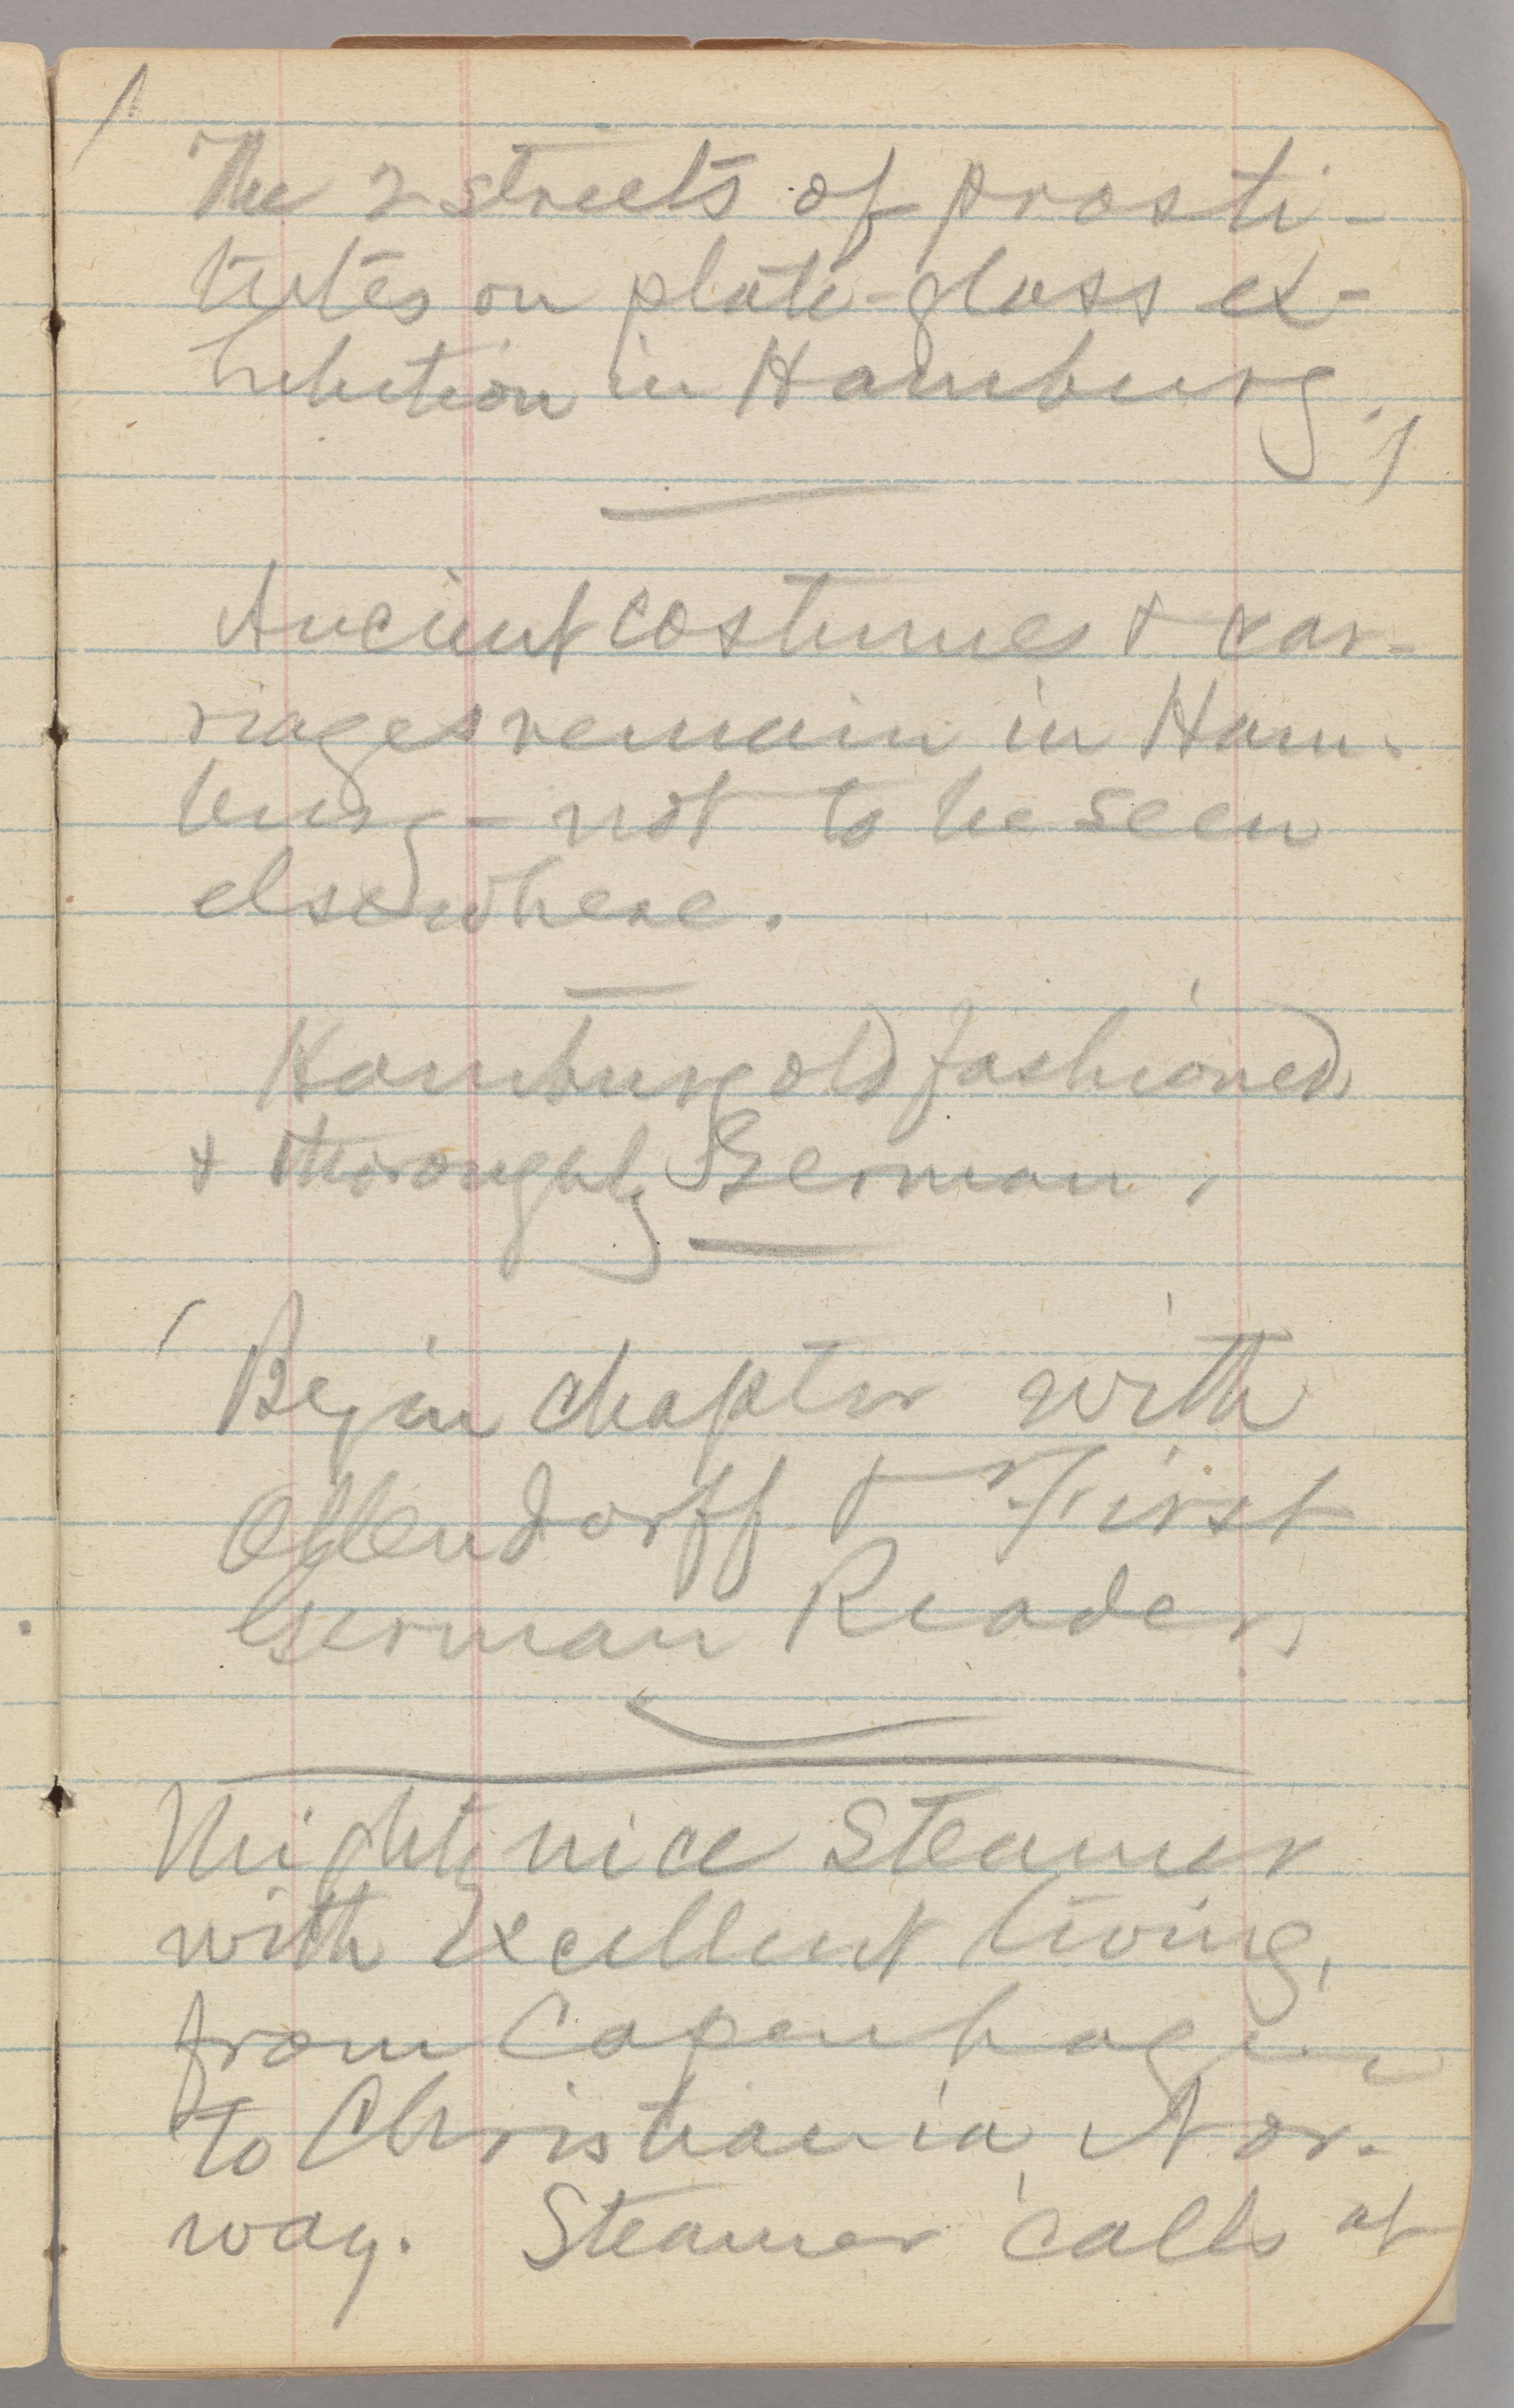 The 2 streets of prosti-
tutes on plate-glass ex-
hibition in Hamburg.
Ancient costumes & car-
riages remain in Ham-
burg - not to be seen
elsewhere.
Hamburg old fashioned
& thoroughly German.
Begin chapter with
Ollendorff & First
German Reader,
Mighty nice steamer
with excellent living,
from Copenhagen
to Christiania Nor-
way. Steamer calls at